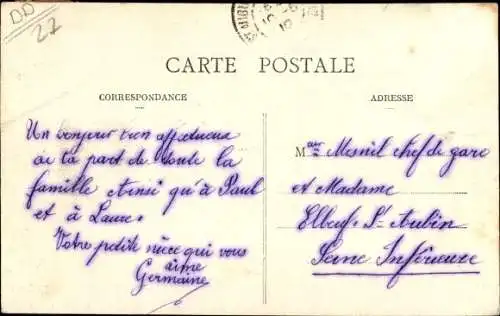 DD
27
CARTE POSTALE
CORRESPONDANCE
ADRESSE
Un bonjour bien affectueux
de la part de toute la
famille Ainsi qu'à Paul
et à Laure.
Votre petite nièce qui vous
aime
Germaine
Mair Mesnil chef de gare
et Madame
Elbeuf St Aubin
Seine Inférieure